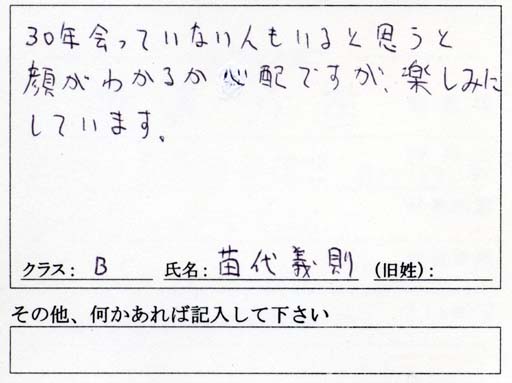 30年会っていない人もいると思うと
顔がわかるか心配ですが、楽しみに
しています。
クラス: B 氏名: 苗代義則 (旧姓):
その他、何かあれば記入して下さい